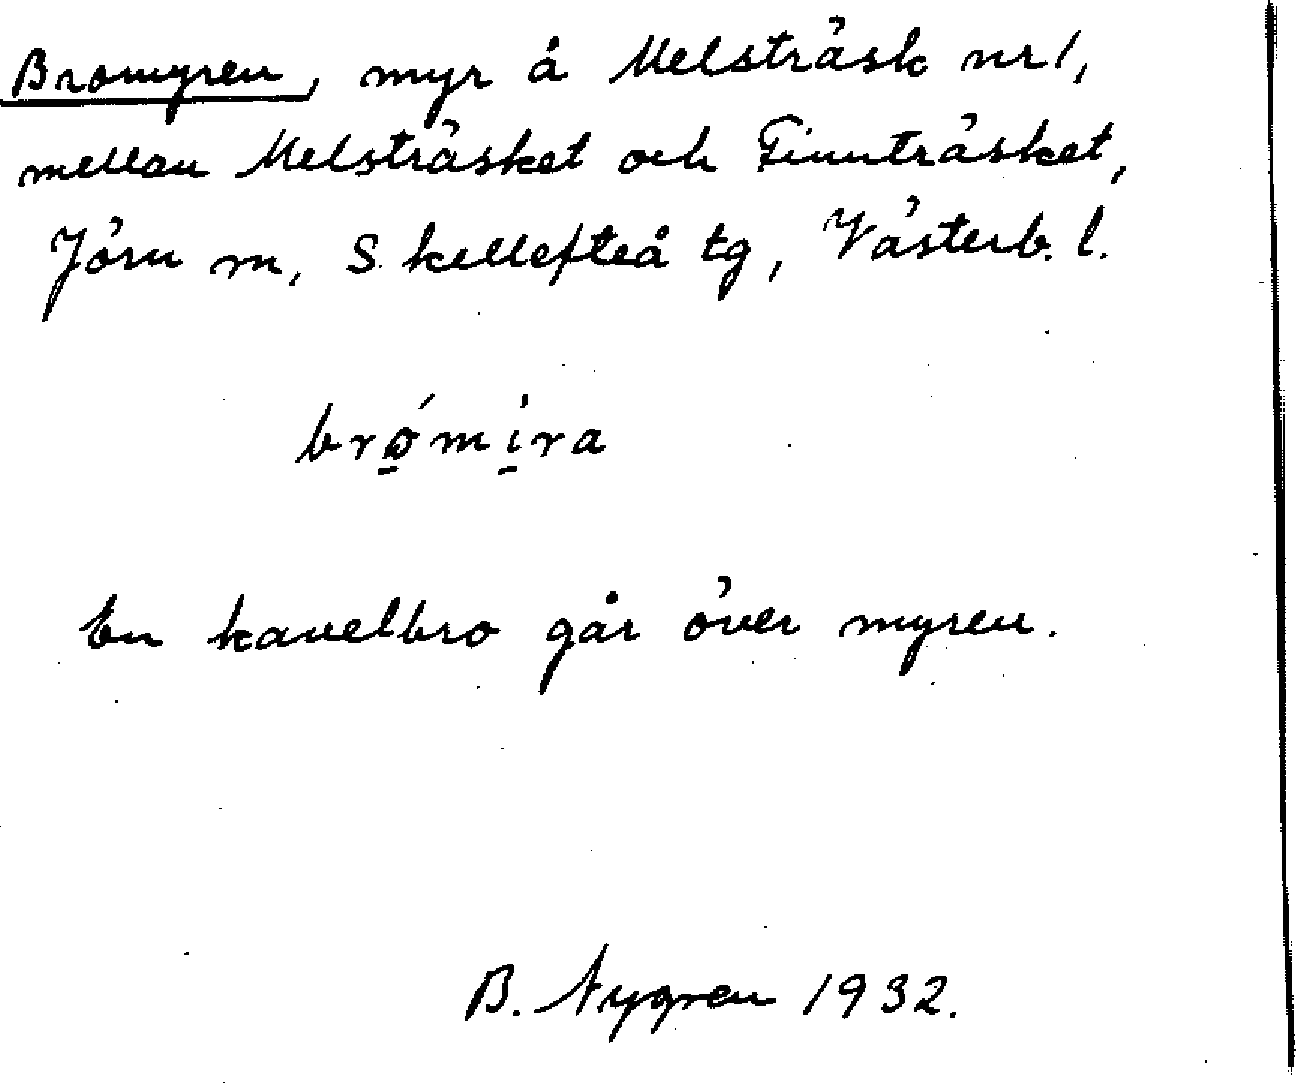 Bromyren, myr å Melsträsk nr 1,
mellan Melsträsket och Finnträsket,
Jörn m, Skellefteå tg, Västerb. l.
brǿ̱mi̱ra
En kavelbro går över myren.
B. Nygren 1932.